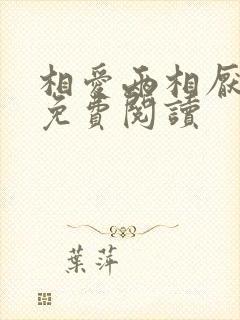 相愛兩相厭
免費閱讀
葉萍